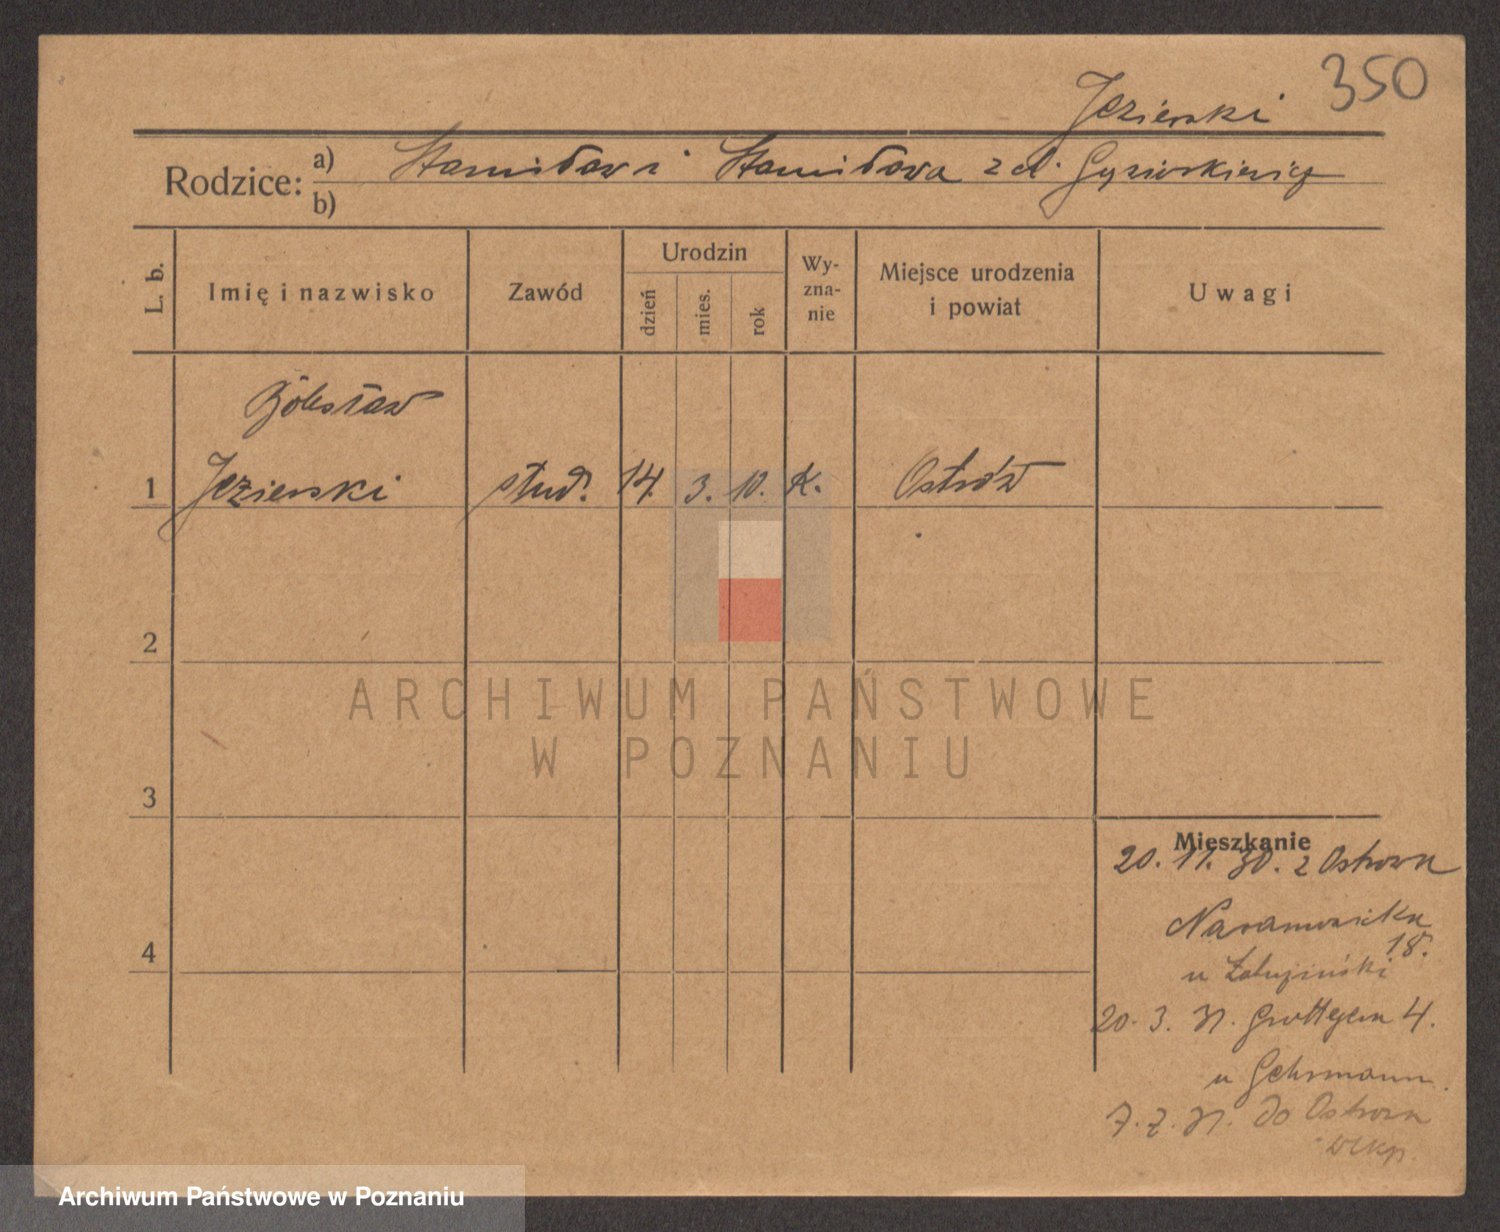 350
Jezierski
Rodzice: a) Stanisław i Stanisława z d.
b)
L. b.
Imię i nazwisko
Zawód
Urodzin
dzień
mies.
rok
Wy-
zna-
nie
Miejsce urodzenia
i powiat
Uwagi
Bolesław
1 Jezierski stud. 14. 3. 10. K. Ostrów
2
3
4
Mieszkanie
20. 11. 30. z Ostrowa
Naramowicka
18.
u
20. 3. 31. Grottgera 4.
u Gehrmann.
7. 7. 31. do Ostrowa
wlkp.
ARCHIWUM PAŃSTWOWE
W POZNANIU
Archiwum Państwowe w Poznaniu